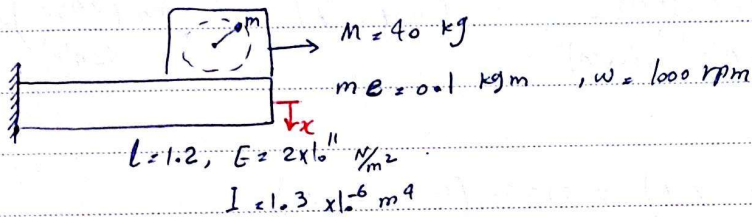 m
M = 40 kg
me = 0.1 kgm , w = 1000 rpm
x
l = 1.2, E = 2x10¹¹ N/m²
I = 1.3 x10⁻⁶ m⁴